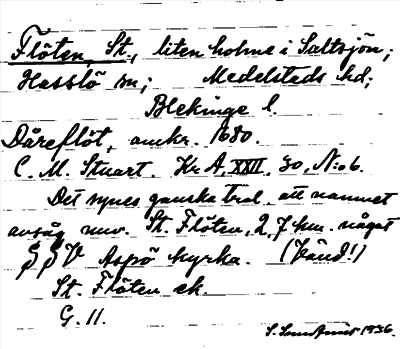 Flöten, St., liten holme i Saltsjön;
Hasslö sn; Medelstads hd;
Blekinge l.
Dåreflöt, omkr. 1680.
C. M. Stuart. Kr A, XXII, 30, N:o 6.
Det synes ganska trol. att namnet
avsåg nuv. St. Flöten, 2,7 km. något
S S V Aspö kyrka. (Vänd!)
St. Flöten ek.
G. 11.
1936.